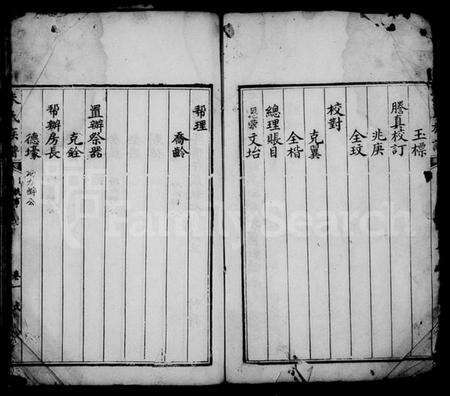 玉標
謄真校訂
兆庚
全玟
校對
克翼
全楷
總理賬目
恩榮 文坮
帮理
喬齡
置辦祭器
克銓
帮辦房長
德壕
FamilySearch